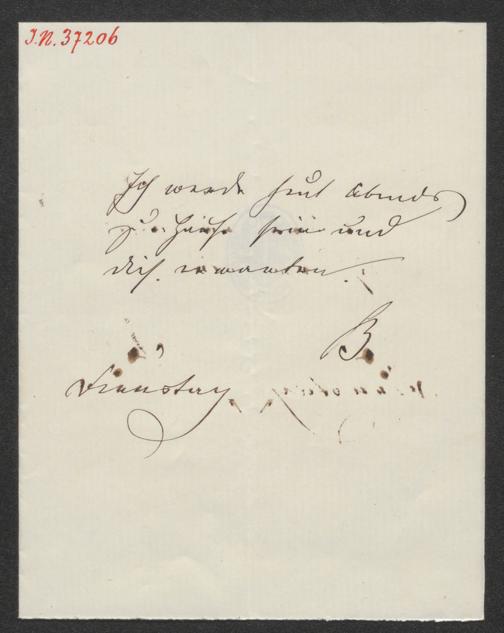 I.N. 37206
Ich werde heut Abends
zu Hause sein und
dich erwarten.
B.
Dienstag